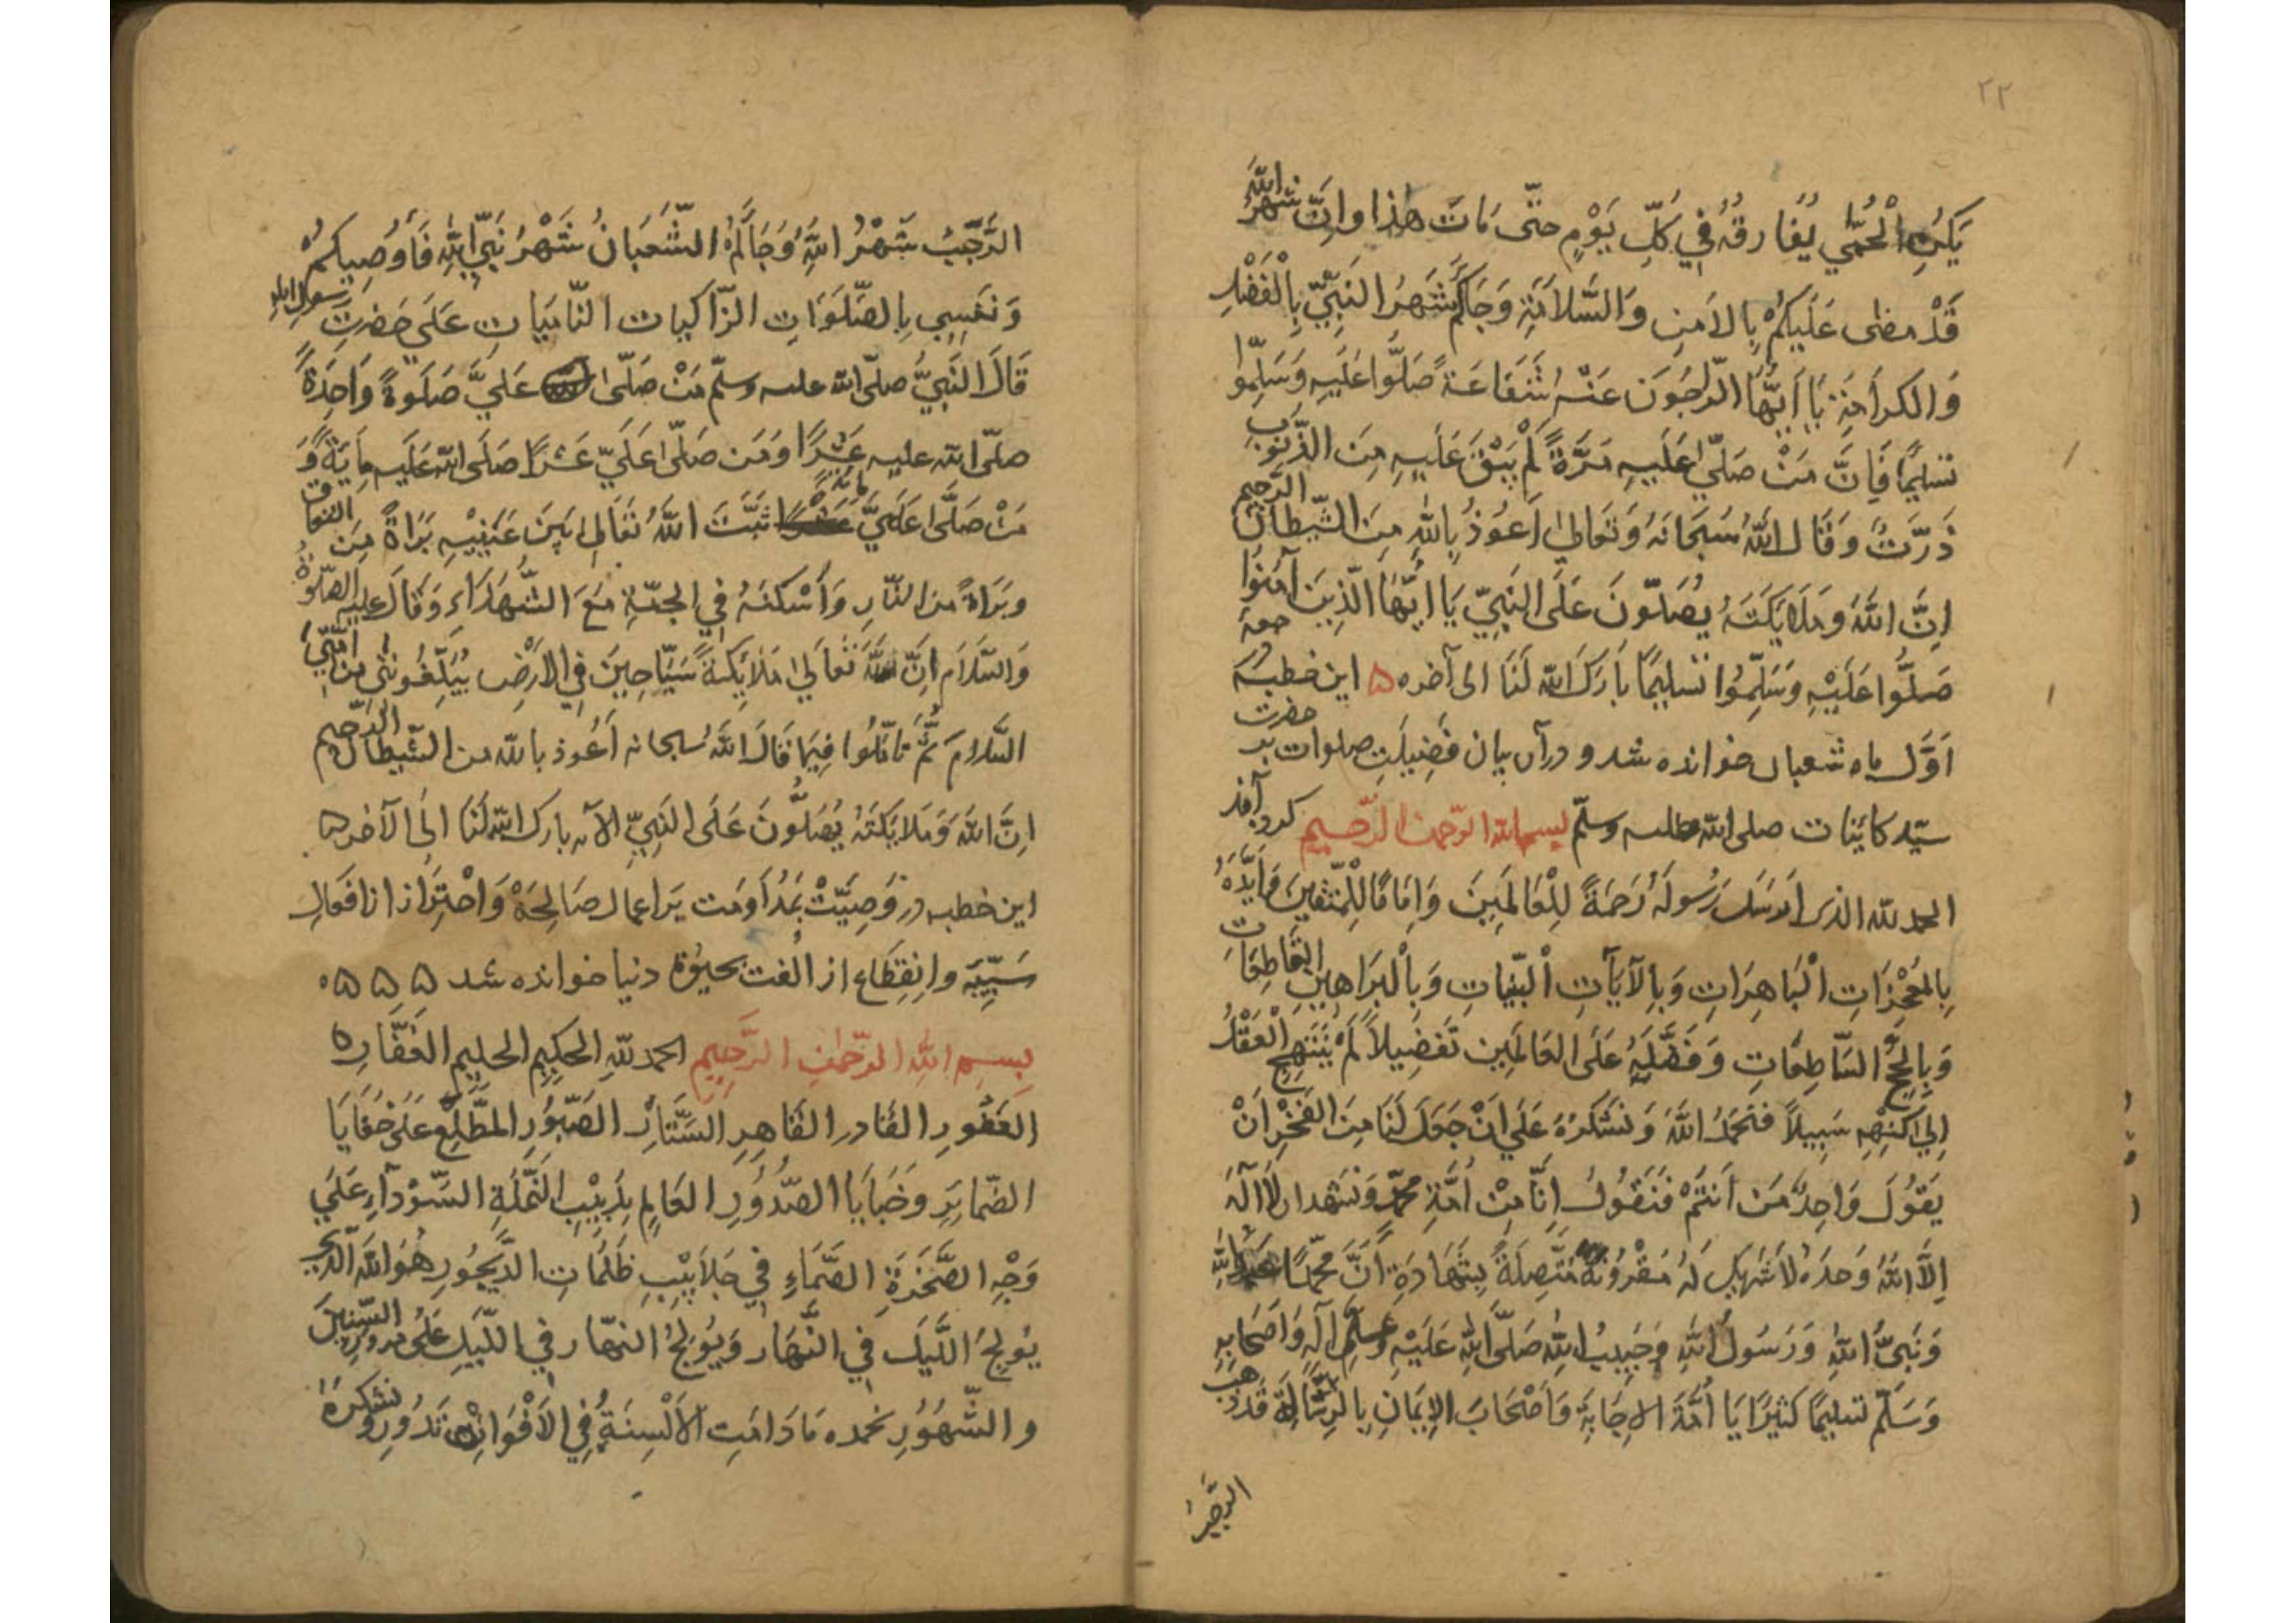 ٢٢
يَكُنِ الْحُمّٰي يُفَارِقُهُ فِي كُلِّ يَوْمٍ حتّى مَاتَ هذا وَاِنَّ شَهْرُ اللّٰهَ
قَدْ مضٰى عَلَيكُمْ بِالاَمنِ وَالسَّلاَمَةِ وَجَاكُمْ شَهرُ النَّبِيِّ بِالْفَضْلِ
وَالكراَمَةِ يَا اَيُّهَا الرّاجُونَ عَنْهُ شَفَاعَةً صَلُّوا عَلَيهِ وَسَلِّمُوا
تسليمًا فَاِنَّ مَنْ صَلّٰي عَلَيهِ مَرَّةً لَمْ يَبْقَ عَلَيهِ مِنَ الذُّنُوبِ
ذَرَّتٌ وَقَالَ اللّٰهُ سُبحَانَهُ وَتَعَالٰي اَعوُذُ بِاللّٰهِ مِنَ الشَّيطَانِ الرَّجِيمِ
اِنَّ اللّٰهَ وَمَلاَئِكَتَهُ يُصَلّونَ عَلَى النَّبِيّ يَا اَيُّهَا الَّذِينَ آمَنُوا
صَلُّوا عَلَيْهِ وَسَلِّمُوا تَسليمًا بَارَكَ اللّٰه لَنَا الى آخره ۵ اين خطبه در جمعهٔ
اَوَّل ماه شعبان خوانده شد و درآن بيان فَضِيلَتِ صلوات بر حضرت
سيّد كاينات صلى اللّٰه عليه وسلّم بسم اللّٰه الرّحمن الرّحيم كرد آفذ
الحمد للّٰه الذى اَرسَلَ رَسُولَهُ رَحمَةً لِلْعَالَمِينَ وَاِمَامًا لِلْمُتَّقِينَ وَاَيَّدَهُ
بِالمُعْجِزَاتِ الْبَاهِرَاتِ وَبِالآيَاتِ الْبَيّنَاتِ وَبِالْبَرَاهِينِ القَاطِعَاتِ
وَبِالحُجَجِ السَّاطِعَاتِ وَفَضَّلَهُ عَلَى العَالَمِينَ تَفضِيلاً لَمْ يَنتَهِجِ الْعَقْلُ
اِلٰي كُنْهِهِ سَبِيلاً فَنَحْمَدُ اللّٰهَ وَنَشكُرُهُ عَلَي اَنْ جَعَلَ لَنَا مِنَ الفَخْرِ اَنْ
يَقُوُلَ وَاحِدٌ مَنْ اَنتُمْ فَنَقُولُ اِنَّا مِنْ اُمَّةِ محمّدٍ وَنشهد ان لاَ الٓهَ
اِلاَّ اللّٰهُ وَحدَهُ لاَ شَرِيكَ لَهُ مَقْرُونَةً مُتَّصِلَةً بِشَهَادَةِ اَنَّ محمّدًا عَبدُ اللّٰهِ
وَنَبِيُّ اللّٰهِ وَرَسُولُ اللّٰهِ وَحَبِيبُ اللّٰهِ صَلَّى اللّٰه عَلَيْهِ وعلى آلِهِ وَاَصحَابِهِ
وَسَلّم تسليمًا كثيرًا يَا اُمَّةَ الاِجَابَةِ وَاَصْحَابَ الاِيمَانِ بِالرِّسَالَةِ قَدْ ذهَبَ
الرَّجَبُ
الرَّجَبُ شَهْرُ اللّٰهِ وَجَاَلَكُمُ الشَّعبَانُ شَهْرُ نَبِيِّ اللّٰهِ فَاُوصِيكُمْ
وَنَفسِي بِالصَّلَوَاتِ الزّاكيات النّاميَاتِ عَلَي حَضرتِ رسولِ اللّٰهِ
قَالَ النَّبِيُّ صلّى اللّٰه عليه وسلّم مَنْ صَلّىٰ عَلَيَّ صَلَوةً وَاحِدَةً
صلّى اللّٰه عليه عَشْرًا وَمَن صَلّٰى عَلَيّ عَشْرًا صَلَى اللّٰه عَلَيه مِايَةً وَ
مَنْ صَلَّىٰ عَلَيَّ مايةً ثَبَّتَ اللّٰهُ تَعَالىٰ بَينَ عَينَيْهِ بَرَاةً مِنَ النفاق
وبَرَاةً من النّارِ وَاَسْكَنَهُ فِي الجنّةِ مَعَ الشُّهَدَاءِ وَقَالَ عليه الصّلوةُ
وَالسَّلاَم اِنَّ للّٰهِ تَعَالَي مَلاَئِكةً سَيّاحِينَ فِي الاَرْضِ يُبَلِّغُونَنِي مِن اُمَّتِي
السَّلاَمَ ثُمَّ تامَّلُوا فِيمَا قَالَ اللّٰهُ سُبحانه اَعُوذ باللّٰه من الشَّيطانِ الرَّجيم
اِنَّ اللّٰهَ وَمَلاَئِكَتَهُ يُصَلُّونَ عَلَى النَّبِيِّ الآيه بارك اللّٰه لَنَا الَي الآخر ۵
اين خطبه در وَصِيَّتْ بَمُدَاوَمَت بَر اعمال صَالِحَهْ وَاحْتِرَاز از افعَالِ
سَيِّئَه واِنقِطَاع از اُلفت بحيٰوة دنيا خوانده شد ۵ ۵ ۵
بِسمِ اللّٰهِ الرّحمٰنِ الرَّحِيمِ الحمد للّٰهِ الحَكِيمِ الحليم الغَفَّارِ ۵
الغَفُورِ القَادرِ القَاهِرِ السَتَّارِ الصَّبُورِ المطَّلِعِ عَلَى خَفَايَا
الضَّمايِرِ وَخَبَايَا الصُّدُورِ العَالِمِ بِدَبِيْبِ النَّمْلَةِ السَّوْدآءِ عَلَي
وَجْهِ الصَّخرَةِ الصَّمَاءِ فِي جَلاَبِيْبِ ظُلُمَاتِ الدَّيجُورِ هُوَ اللّٰهُ الّذي
يُولِجُ اللَّيلَ فِي النَّهَارِ وَيُوْلِجُ النهّار فِي اللَّيلِ عَلٰى مرورِ السّنينَ
والشُّهُورِ نحمده مَا دَامَتِ الاَلْسِنَةُ فِي الاَفْوَاهِ تَدُورُ ونشكرهُ